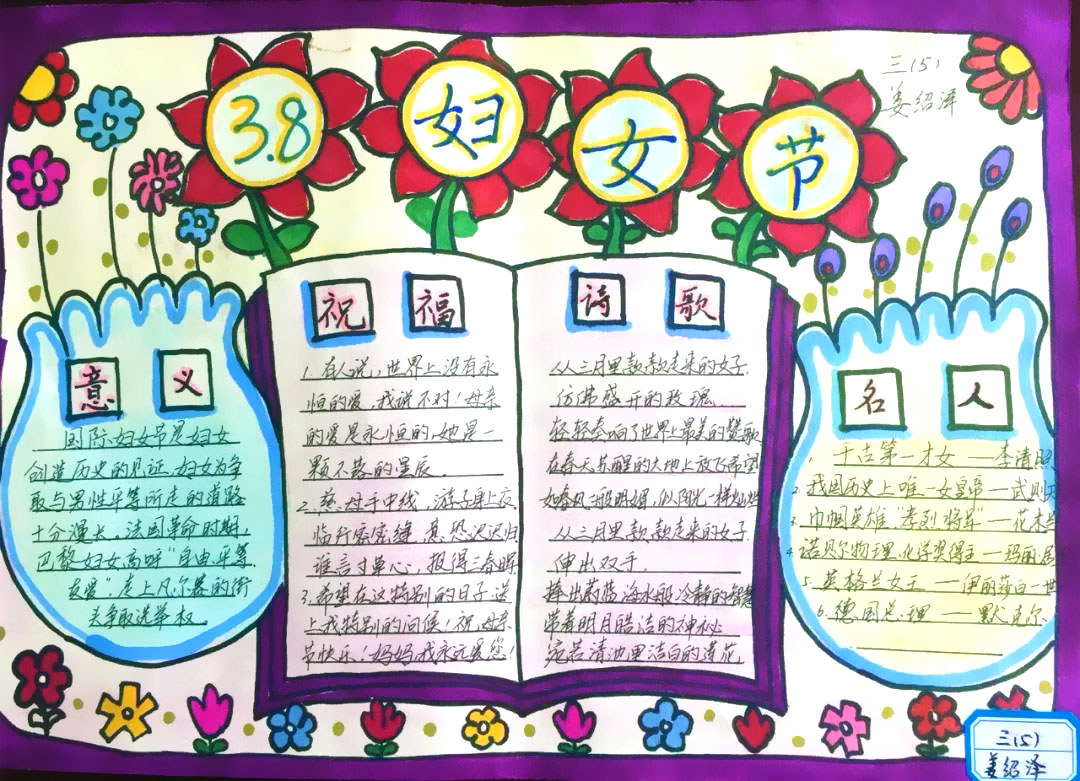 3.8 妇女节
三(5)
姜绍泽
意义
国际妇女节是妇女
创造历史的见证,妇女为争
取与男性平等所走的道路
十分漫长。法国革命时期,
巴黎妇女高呼"自由、平等、
友爱",走上凡尔赛的街
头争取选举权。
祝福
1.有人说,世界上没有永
恒的爱,我说不对!母亲
的爱是永恒的,她是一
颗不落的星辰。
2.慈母手中线,游子身上衣
临行密密缝,意恐迟迟归
谁言寸草心,报得三春晖
3.希望在这特别的日子送
上我特别的问候!祝母亲
节快乐!妈妈,我永远爱您!
诗歌
从三月里款款走来的女子,
仿佛盛开的玫瑰
轻轻奏响了世界上最美的赞歌
在春天苏醒的大地上放飞希望
如春风一般明媚,似阳光一样灿烂
从三月里款款走来的女子
伸出双手,
捧出蔚蓝海水般冷静的智慧
带着明月皓洁的神秘
宛若清池里洁白的莲花
名人
1、千古第一才女——李清照
2、我国历史上唯一女皇帝——武则天
3、巾帼英雄"孝烈将军"——花木兰
4、诺贝尔物理,化学奖得主——玛丽·居
5、英格兰女王——伊丽莎白一世
6、德国总理——默克尔
三(5)
姜绍泽